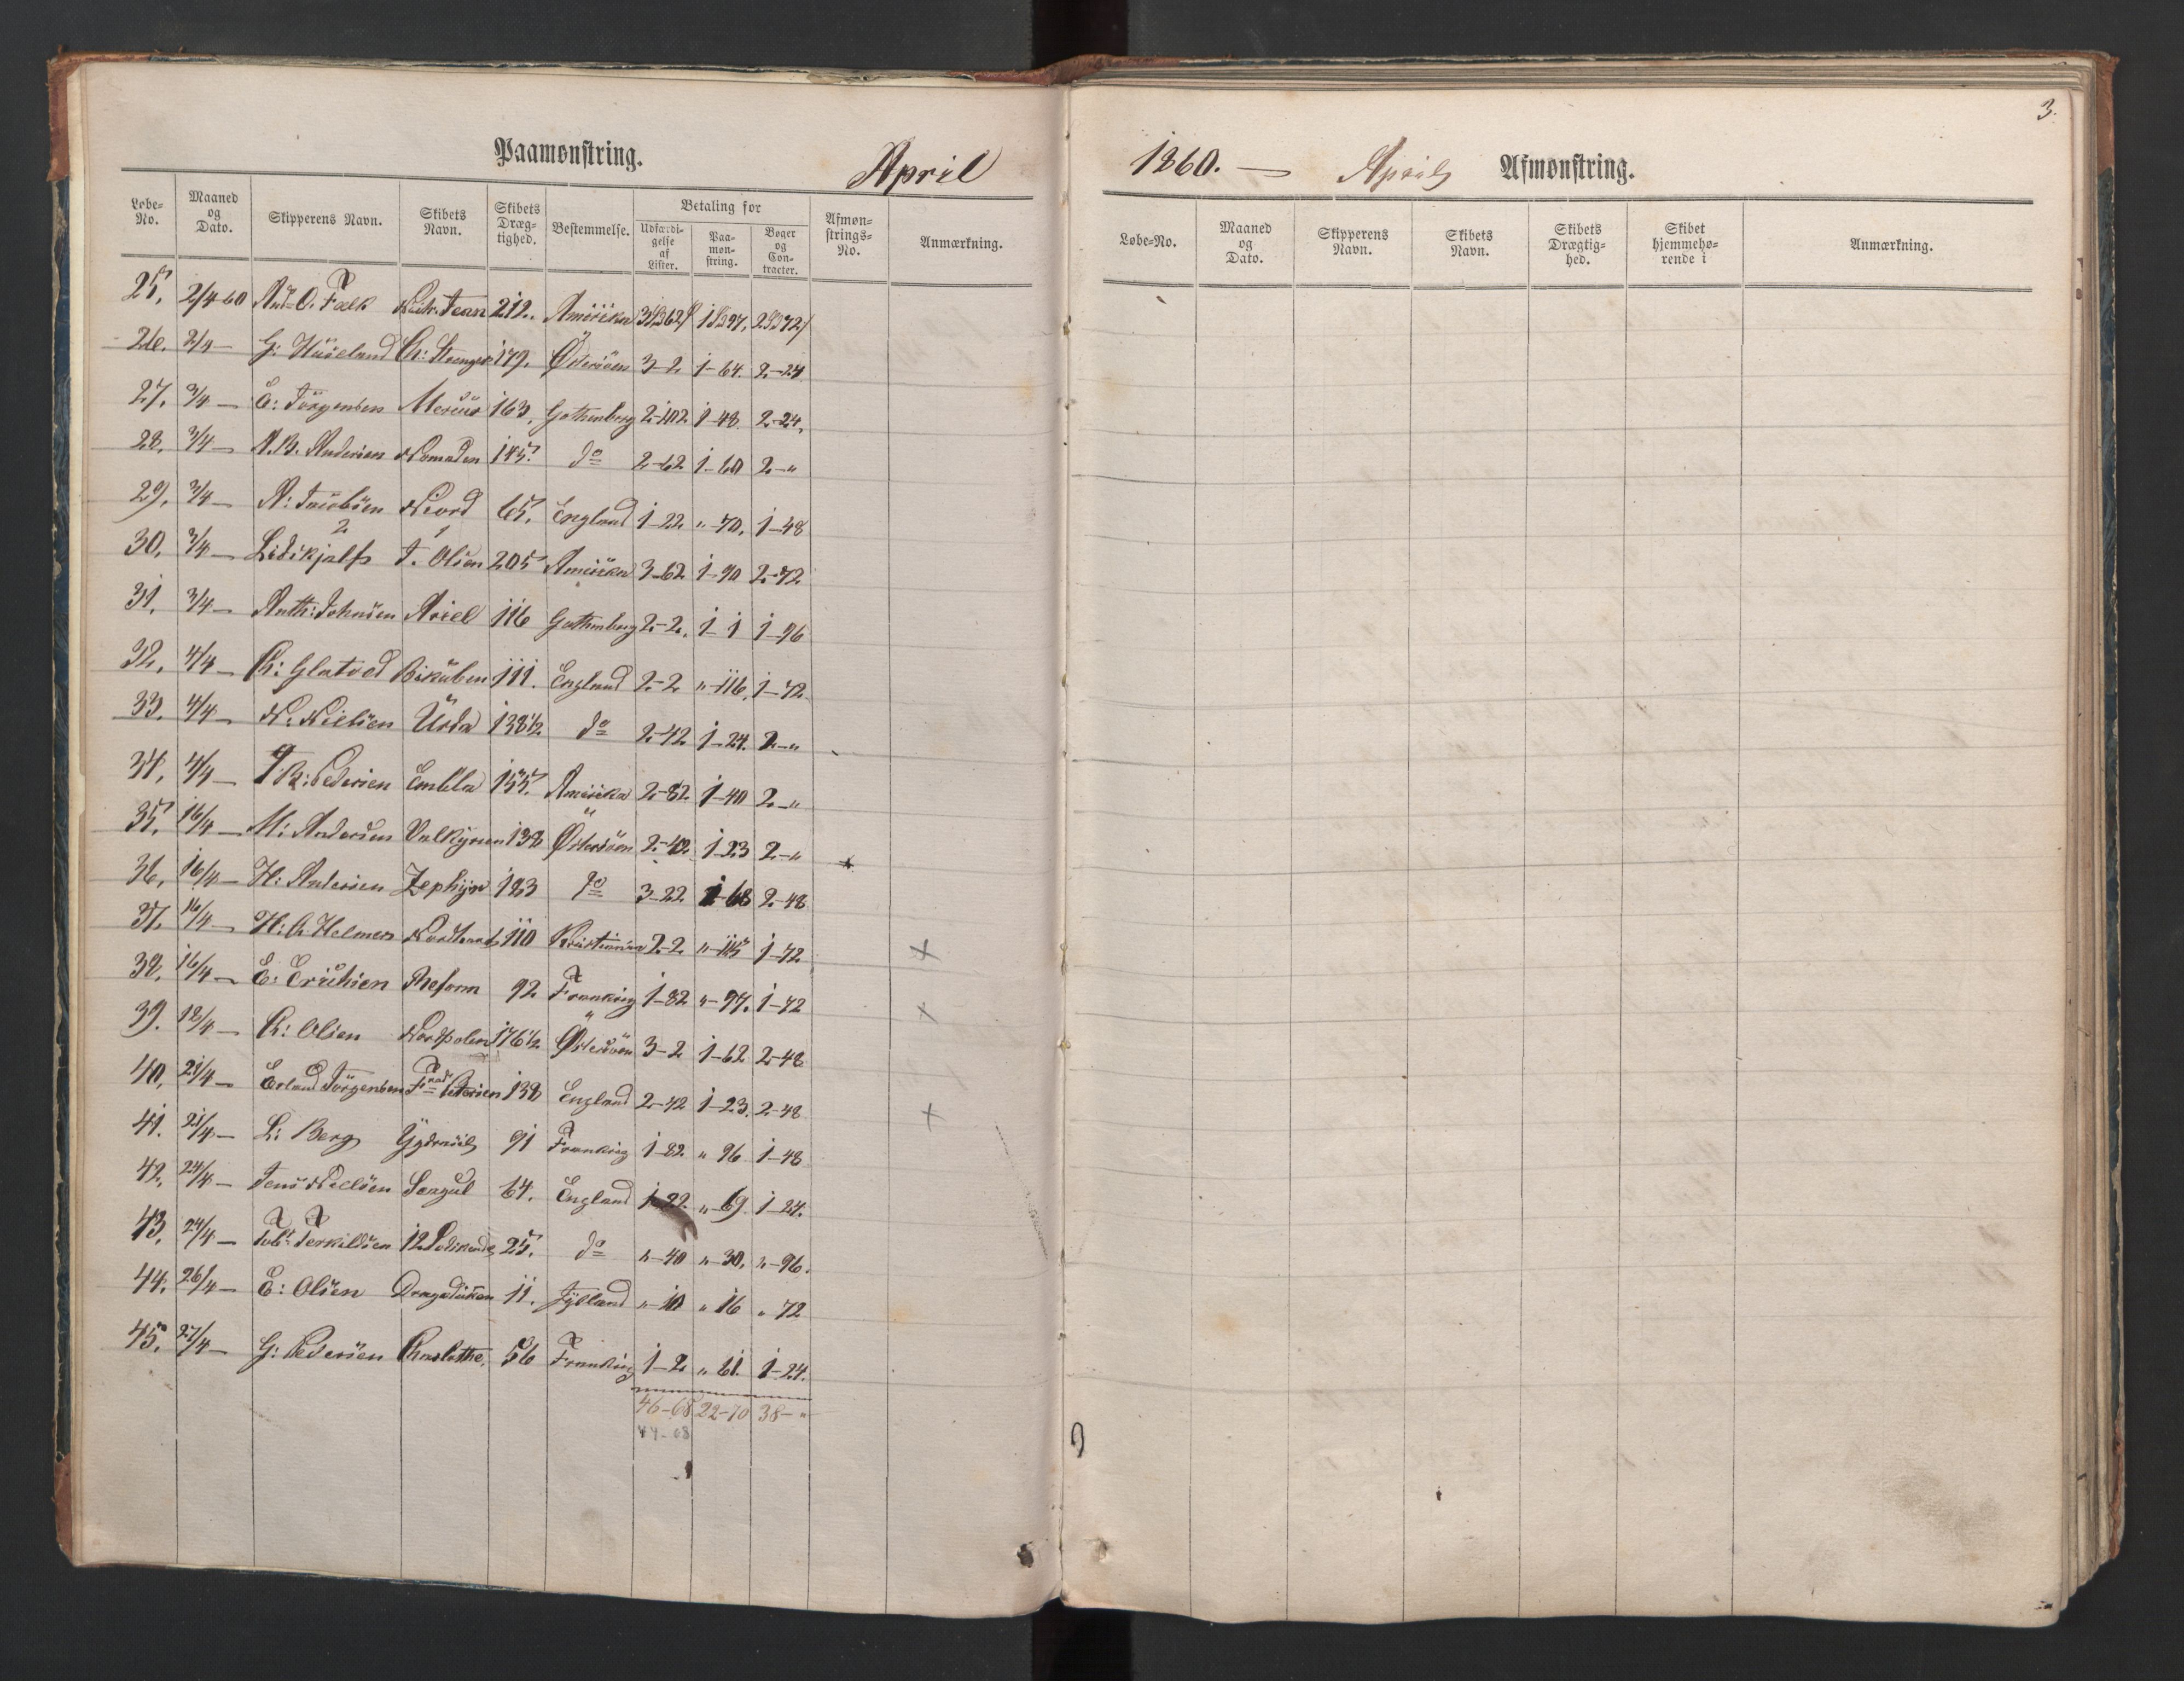 Paamønstring.
April
Løbe-No.
Maaned og Dato.
Skipperens Navn.
Skibets Navn.
Skibets Drægtighed.
Bestemmelse.
Betaling for
Udfærdigelse af Lister.
Paamønstring.
Bøger og Contracter.
Afmønstrings-No.
Anmærkning.
25. 2/4-60 And. O. Falk 212. Amerika
26. 2/4 — G: Huseland 179. Østersöen 3-2 1-64. 2-24
27. 3/4 — E: Jörgensen Mercur 163. Gothenborg 2-102 1-48. 2-24.
28. 3/4 — A.B. Andersen Nomaden 145. do 2-62 1-60 2-"
29. 3/4 — A: Jacobsen Niord 65. England 1-22 "-70. 1-48
30. 3/4 — Lidskjalf 2 J. Olsen 1 205 Amerika 3-62 1-90 2-72
31. 3/4 — Anth: Johnsen Ariel 116 Gothenborg 2-2. 1-1 1-96
32. 4/4 — Bikuben 111. England 2-2 "-116. 1-72
33. 4/4 — N: Nielsen Urda 138½ do 2-42 1-24. 2-"
34. 4/4 — B: Pedersen Embla 155. Amerika 2-82 1-40 2-"
35. 16/4 — M: Andersen Valkyrien 138 Östersöen 2-42. 1-23 2-"
36. 16/4 — H: Andersen Zephyr 183 do 3-22 1-68 2-48
37. 16/4 — H: C. Helmers 110 Kristiania 2-2 "-115 1-72
38. 16/4 — E: Erichsen Reform 92 Frankrig 1-82 "-97. 1-72
39. 18/4 — R: Olsen Nordpolen 176½ Østersöen 3-2 1-62 2-48
40. 21/4 — Erland Jörgensen 138 England 2-42 1-23. 2-48
41. 21/4 — L: Berg Ygdrasil 91 Frankrig 1-82 " 96 1-48
42. 24/4 — Jens Nielsen 64. England 1-22. "-69 1-24.
43. 24/4 — Tobs. Terkildsen 12 Södskende 25. do "-40 "-30. "-96.
44. 26/4 — E: Olsen 11. Jylland "-10 " 16 " 72
45. 27/4 — G: Pedersen Charlothe. 56 Frankrig 1-2 " 61. 1-24.
46-68 22-70 38-"
44-68
3.
1860. — April
Afmønstring.
Løbe-No.
Maaned og Dato.
Skipperens Navn.
Skibets Navn.
Skibets Drægtighed.
Skibet hjemmehørende i
Anmærkning.